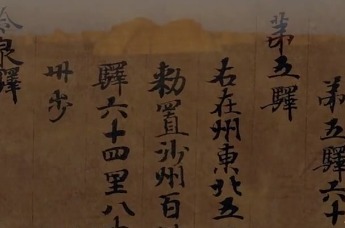 苐五驛六十
苐五驛
右在州東北五
勑置沙州百
驛六十四里八
卅步
冷泉驛